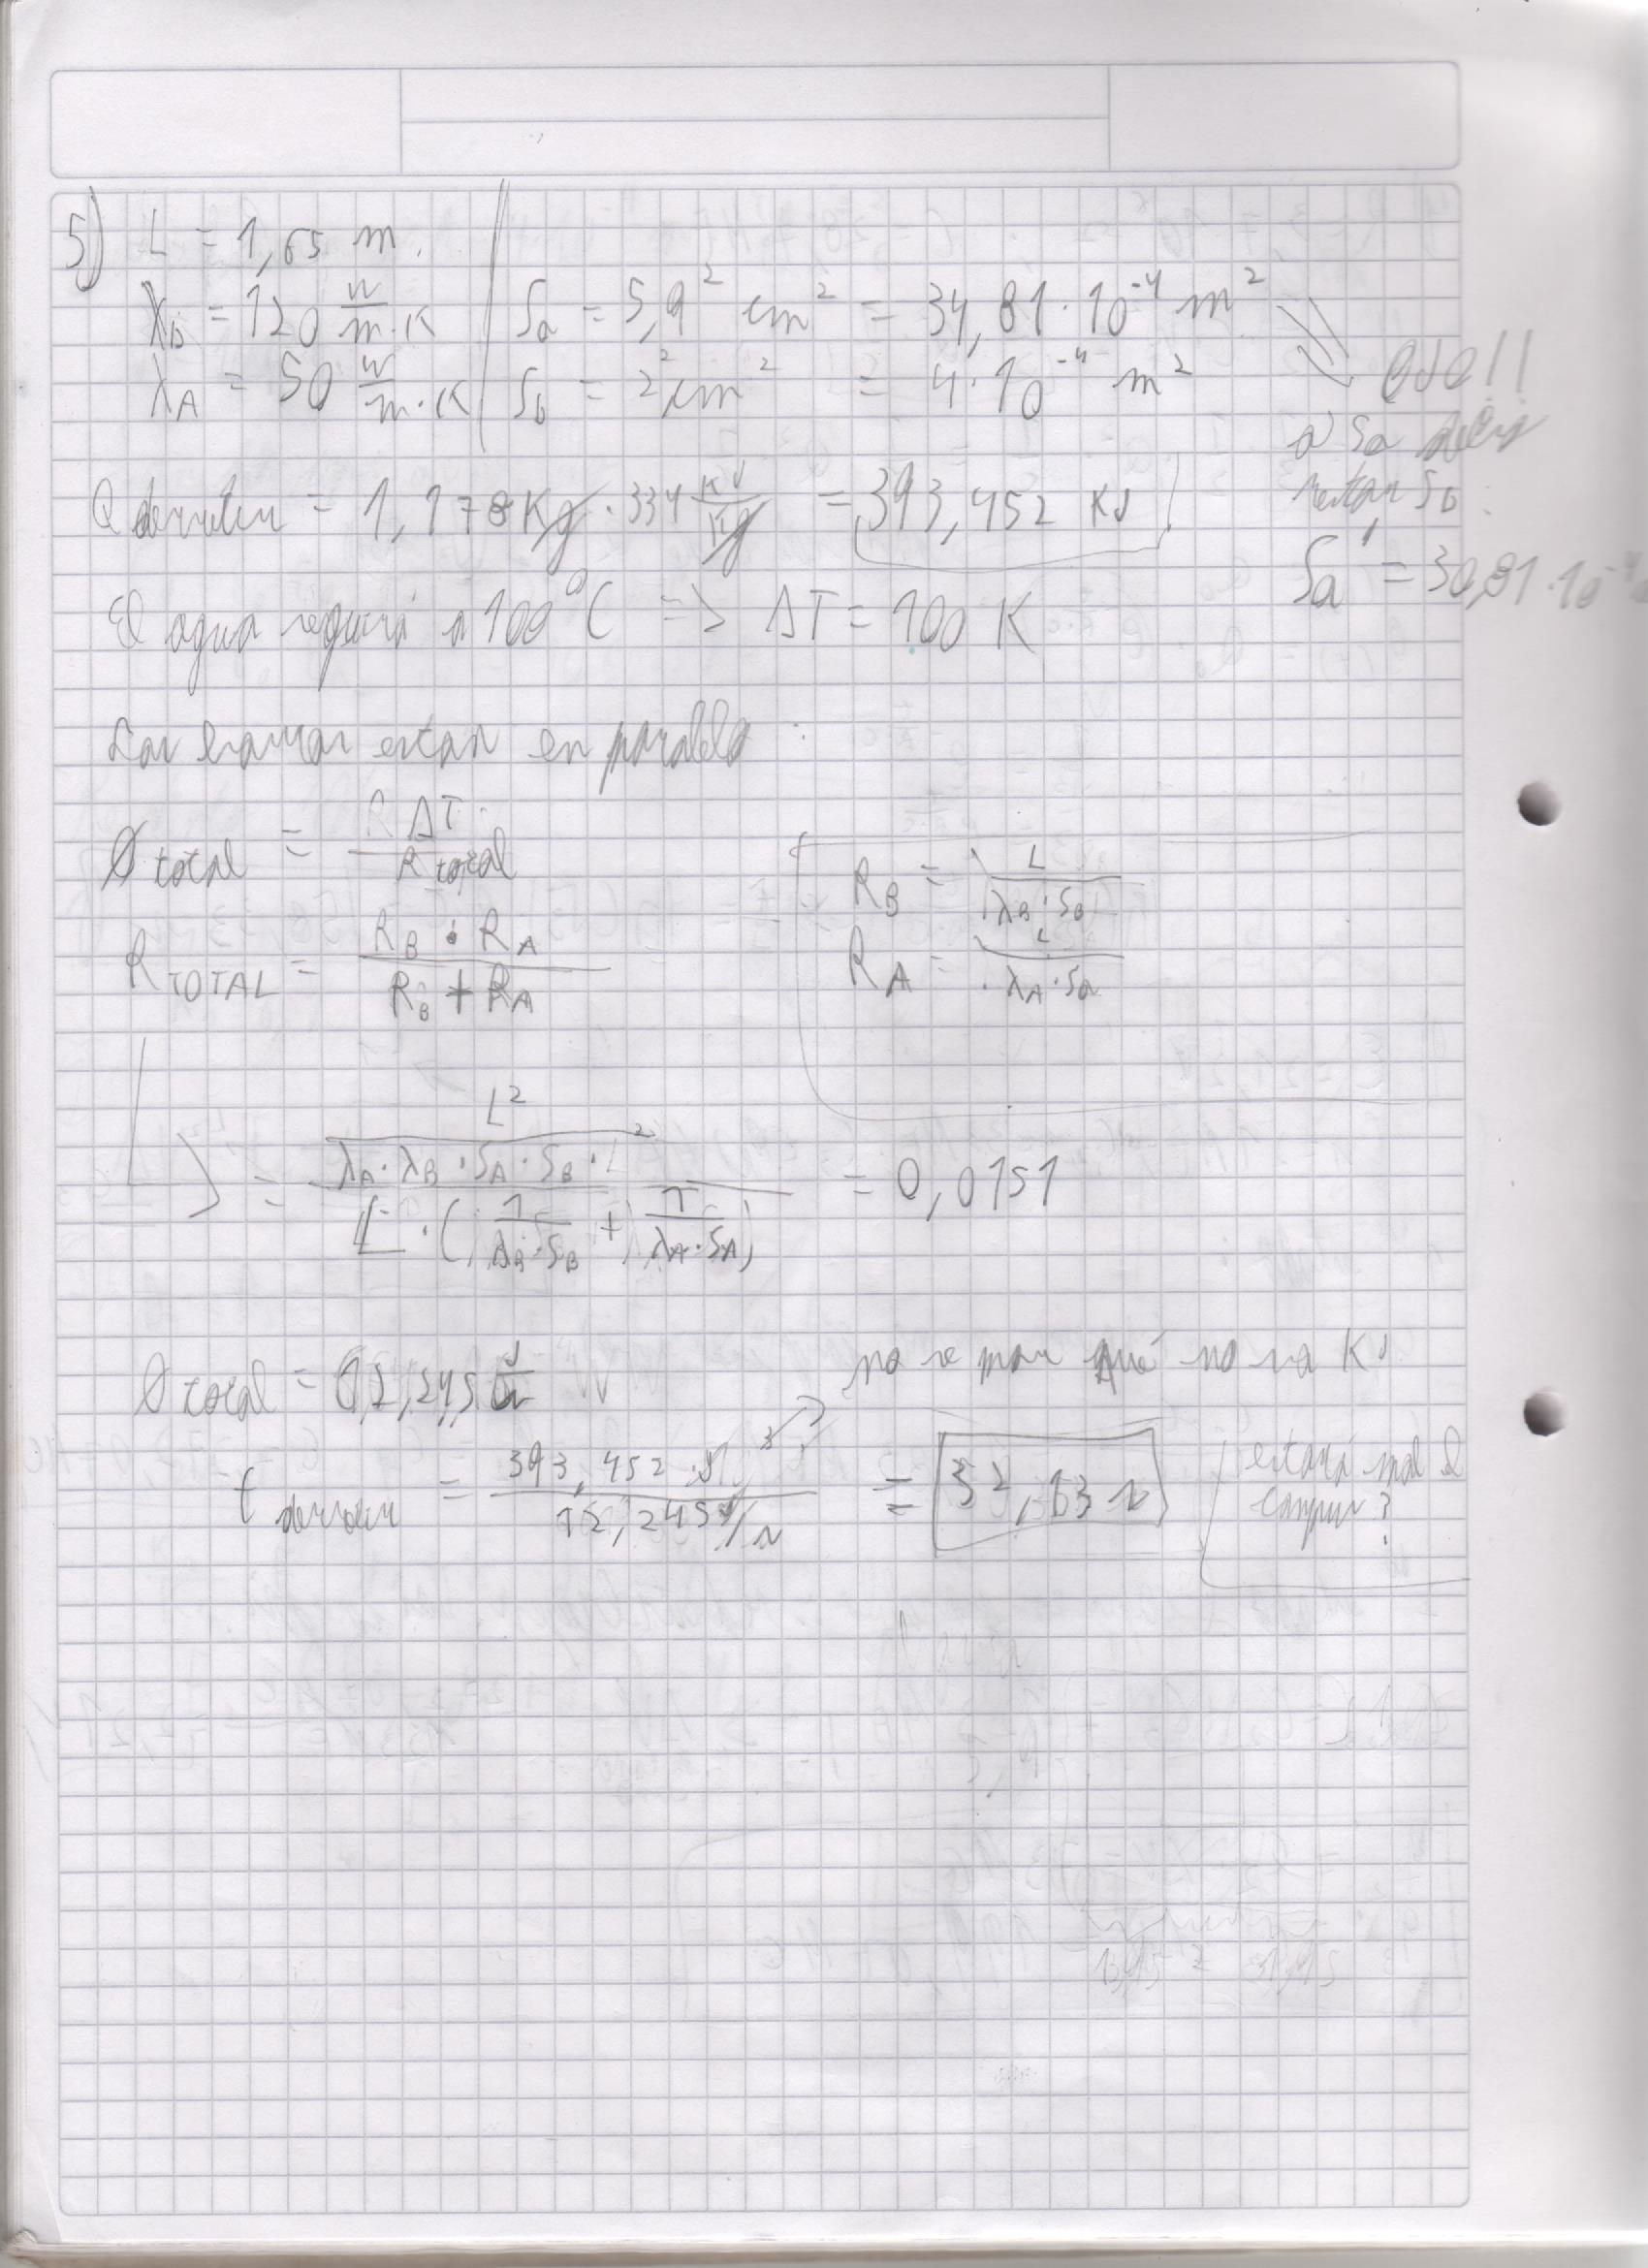 5) L = 1,65 m.
λB = 120 w/m·K
λA = 50 w/m·K
Sa = 5,9² cm² = 34,81·10⁻⁴ m²
Sb = 2² cm² = 4·10⁻⁴ m²
OJO!!
a Sa
restar Sb:
Sa' = 30,81·10⁻⁴
Q derretir = 1,178 Kg · 334 KJ/Kg = 393,452 KJ
El agua seguirá a 100°C => ΔT = 100 K
Las barras estan en paralelo:
Ø total = ΔT / R total
R TOTAL = RB · RA / RB + RA
RB = L / λB·SB
RA = L / λA·Sa
= L² / λA·λB·SA·SB·L² / L·(1/λB·SB + 1/λA·SA) = 0,0151
Ø total = 12,245 J/s W
no se por qué no va KJ
t derretir = 393,452 J / 12,245 J/s = 32,13 s
estará mal el campus?